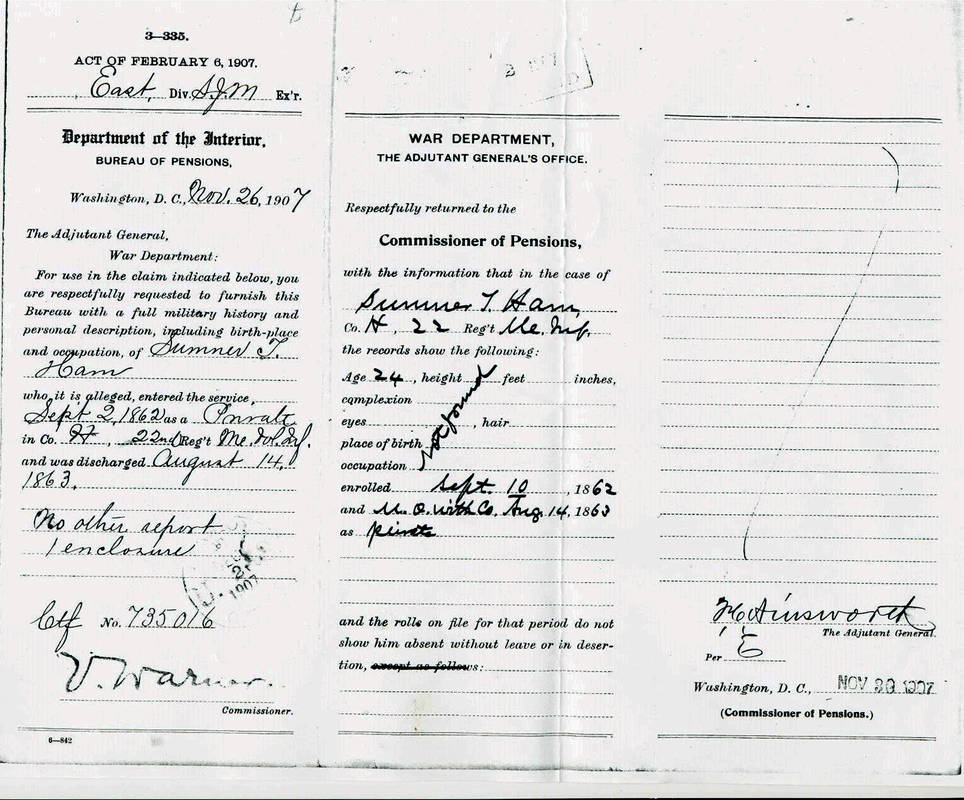 3—335.
ACT OF FEBRUARY 6, 1907.
East, Div. S.J.M Ex'r.
Department of the Interior,
BUREAU OF PENSIONS,
Washington, D. C., Nov. 26, 1907
The Adjutant General,
War Department:
For use in the claim indicated below, you
are respectfully requested to furnish this
Bureau with a full military history and
personal description, including birth-place
and occupation, of Sumner T.
Ham
who, it is alleged, entered the service,
Sept 2, 1862 as a Private
in Co. H, 22nd Reg't Me. Vol. Inf.
and was discharged August 14,
1863.
No other report
1 enclosure
1907
Ctf No. 735016
V. Warner.
Commissioner.
6—842
WAR DEPARTMENT,
THE ADJUTANT GENERAL'S OFFICE.
Respectfully returned to the
Commissioner of Pensions,
with the information that in the case of
Sumner T. Ham,
Co. H, 22 Reg't Me. Inf.
the records show the following:
Age 24, height feet inches,
complexion
eyes, hair
place of birth
occupation
not found
enrolled Sept. 10, 1862
and M. O. with Co. Aug. 14, 1863
as private
and the rolls on file for that period do not
show him absent without leave or in deser-
tion, except as follows:
F C Ainsworth
The Adjutant General.
Per E
Washington, D. C., NOV 29 1907
(Commissioner of Pensions.)